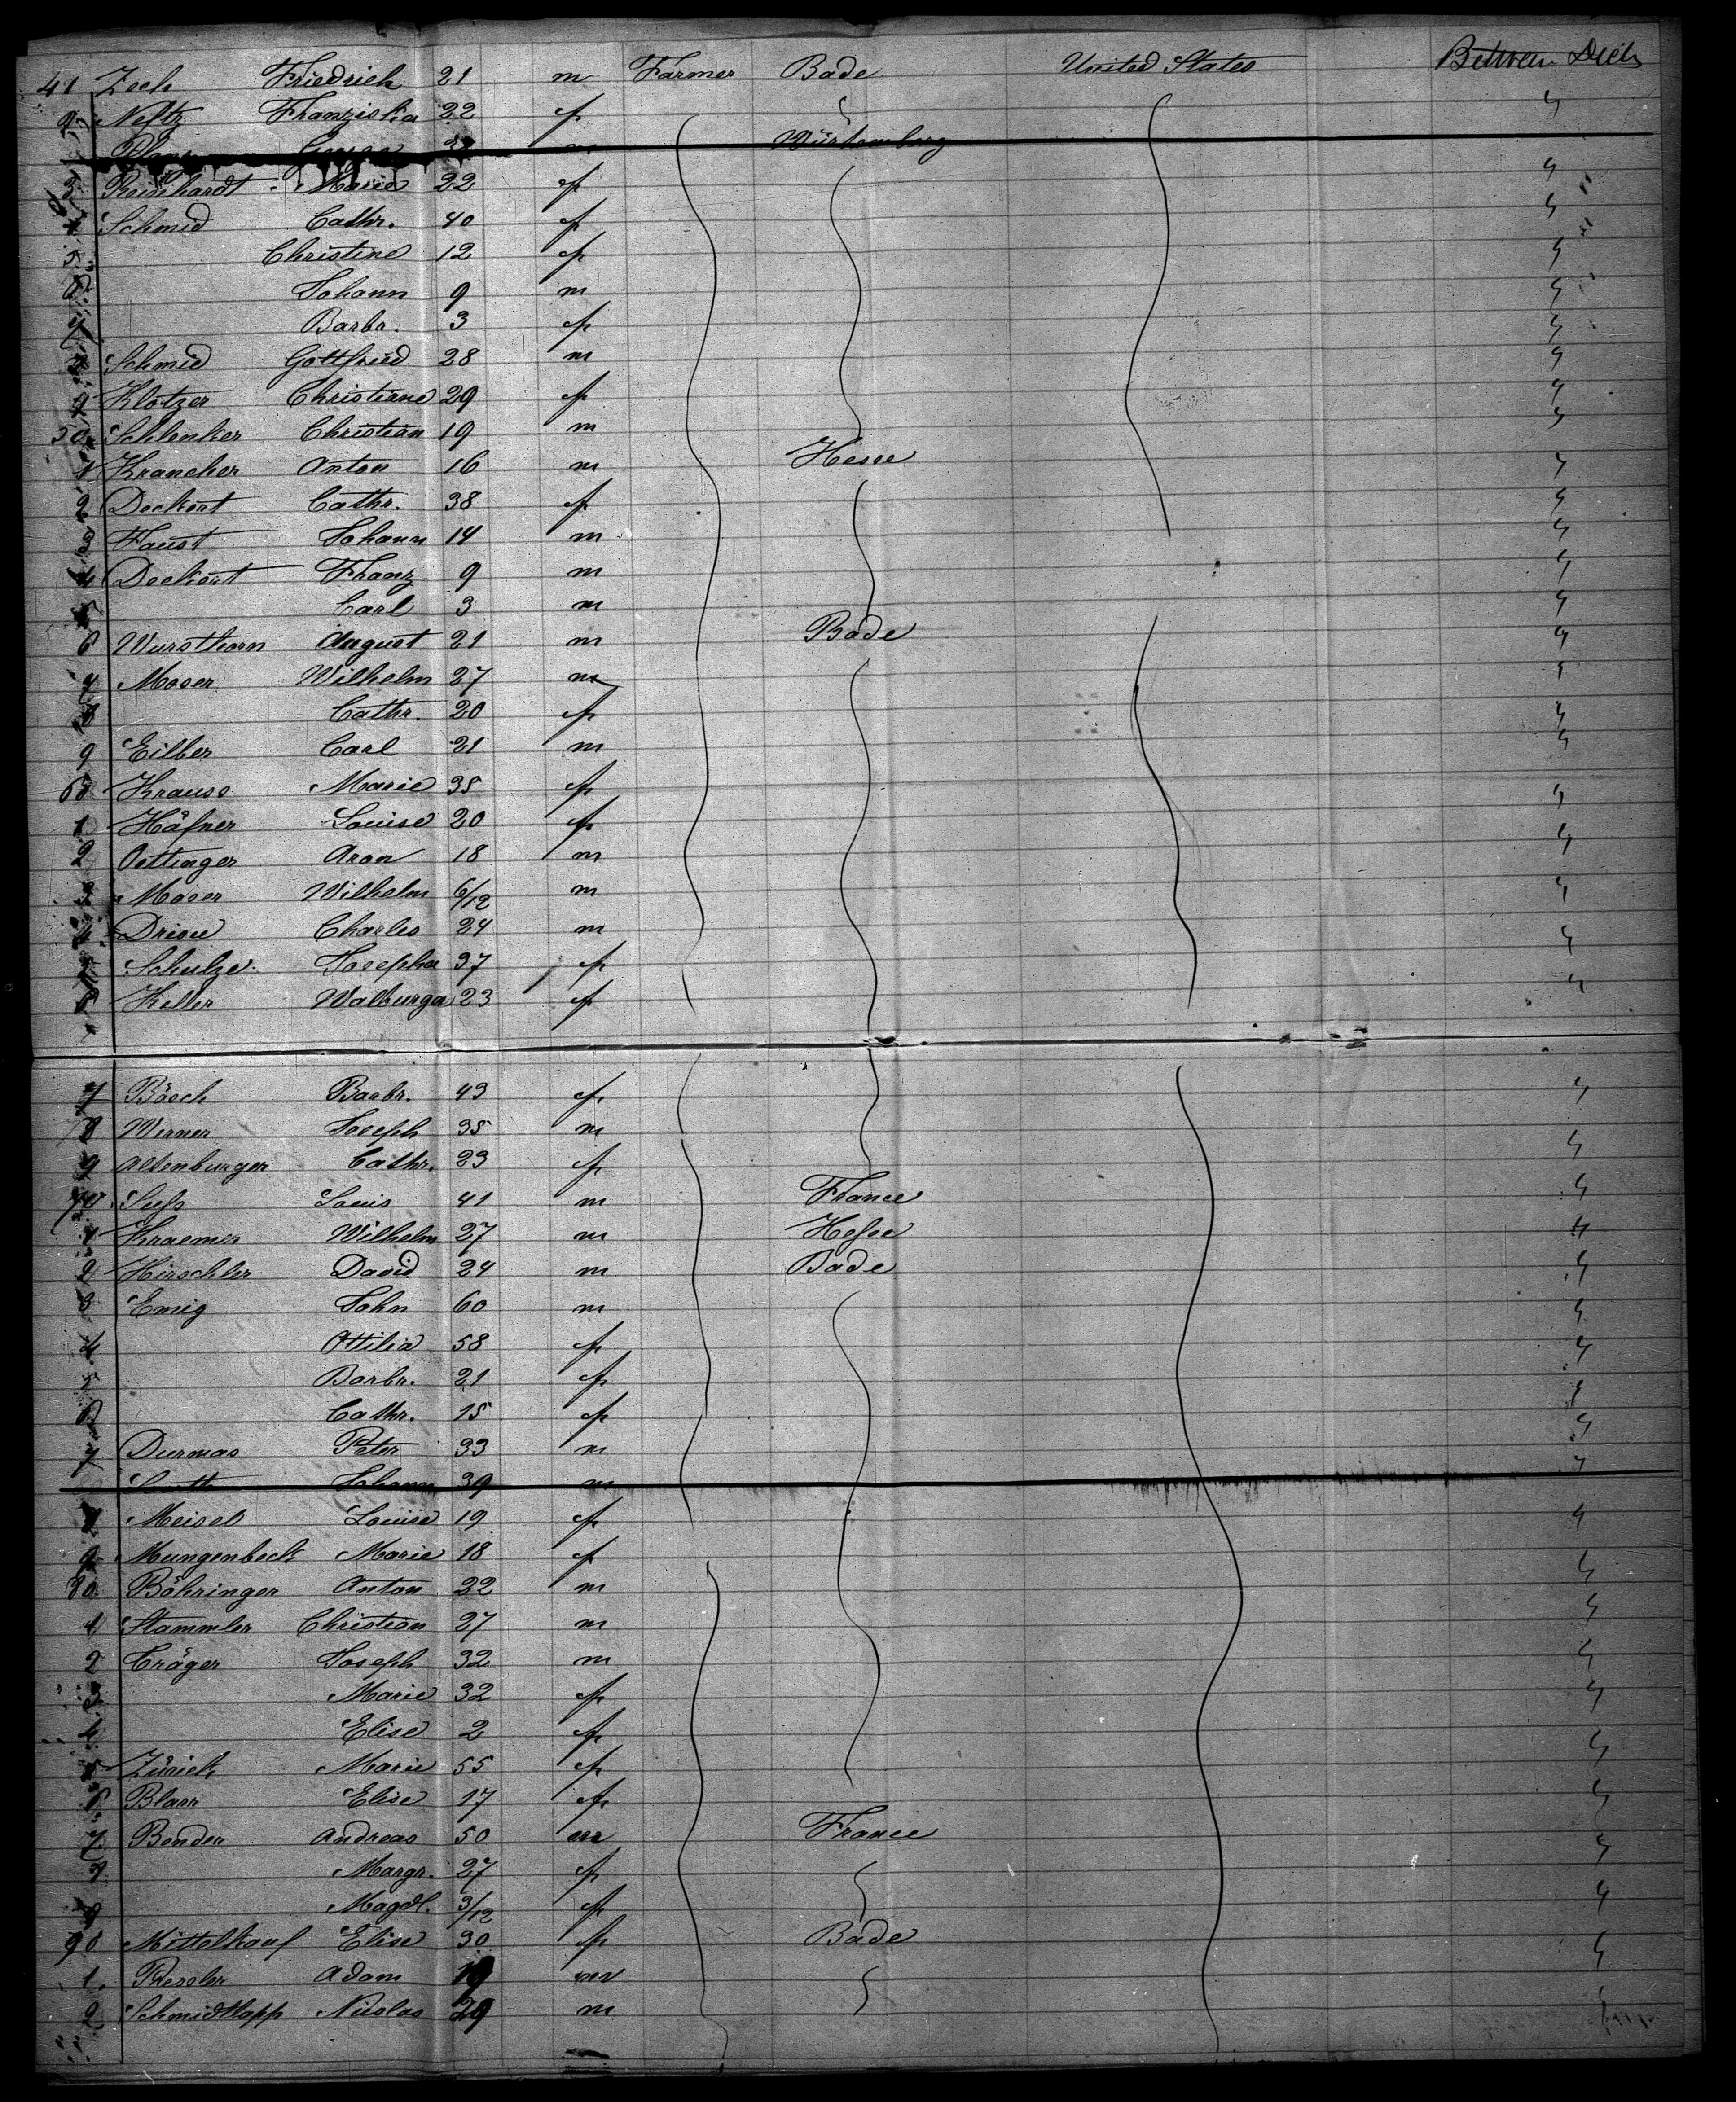 41 Zech Friedrich 21 m Farmer Bade United States Between Deck
2 Neltz Franziska 22 f "
Würtemberg
3 Reinhardt Marie 22 f "
4 Schmid Cathr. 40 f "
5 Christine 12 f "
6 Johann 9 m "
7 Barbr. 3 f "
8 Schmid Gottfried 28 m "
9 Klotzer Christiane 29 f "
50 Schlenker Christian 19 m "
1 Krancher Anton 16 m Hesse "
2 Deckert Cathr. 38 f "
3 Faust Johann 14 m "
4 Deckert Franz 9 m "
5 Carl 3 m "
6 Wursthorn August 21 m Bade "
7 Moser Wilhelm 27 m "
8 Cathr. 20 f "
9 Eilber Carl 21 m "
60 Krauss Marie 35 f "
1 Häfner Louise 20 f "
2 Oettinger Aron 18 m "
3 Moser Wilhelm 6/12 m "
4 Charles 24 m "
5 Schulze Josepha 37 f "
6 Keller Walburga 23 f "
7 Bösch Barbr. 43 f "
8 Werner Joseph 35 m "
9 Altenburger Cathr. 23 f "
70 Suss Louis 41 m France "
1 Kraemer Wilhelm 27 m Hesse "
2 Hirschler David 24 m Bade "
3 Emig John 60 m "
4 Ottilia 58 f "
5 Barbr. 21 f "
6 Cathr. 15 f "
7 Durmas Peter 33 m "
Johann 39 m "
8 Meisel Louise 19 f "
9 Mungenbeck Marie 18 f "
80 Böhringer Anton 22 m "
1 Stammler Christian 27 m "
2 Cräger Joseph 32 m "
3 Marie 32 f "
4 Elise 2 f "
5 Zürick Marie 55 f "
6 Blarr Elise 17 f "
7 Bender Andreas 50 m France "
8 Margr. 27 f "
9 Magdl. 3/12 f "
90 Mittelkauf Elise 30 f Bade "
1 Adam 19 m
2 Schmidtlapp Nicolas 29 m